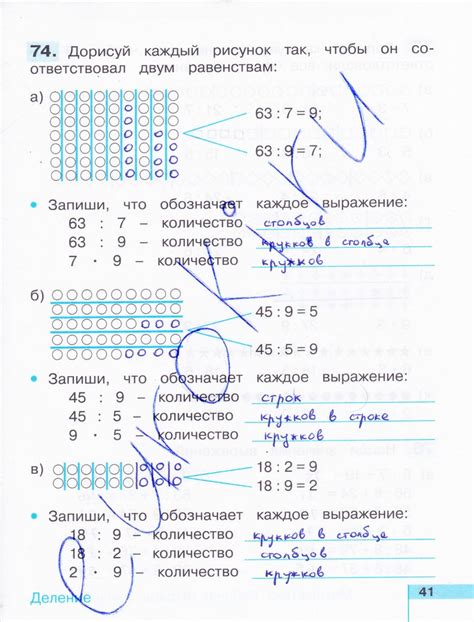 74. Дорисуй каждый рисунок так, чтобы он со-
ответствовал двум равенствам:
а)
63 : 7 = 9;
63 : 9 = 7;
• Запиши, что обозначает каждое выражение:
63 : 7 – количество столбцов
63 : 9 – количество кружков в столбце
7 · 9 – количество кружков
б)
45 : 9 = 5
45 : 5 = 9
• Запиши, что обозначает каждое выражение:
45 : 9 – количество строк
45 : 5 – количество кружков в строке
9 · 5 – количество кружков
в)
18 : 2 = 9
18 : 9 = 2
• Запиши, что обозначает каждое выражение:
18 : 9 – количество кружков в столбце
18 : 2 – количество столбцов
2 · 9 – количество кружков
Деление
41